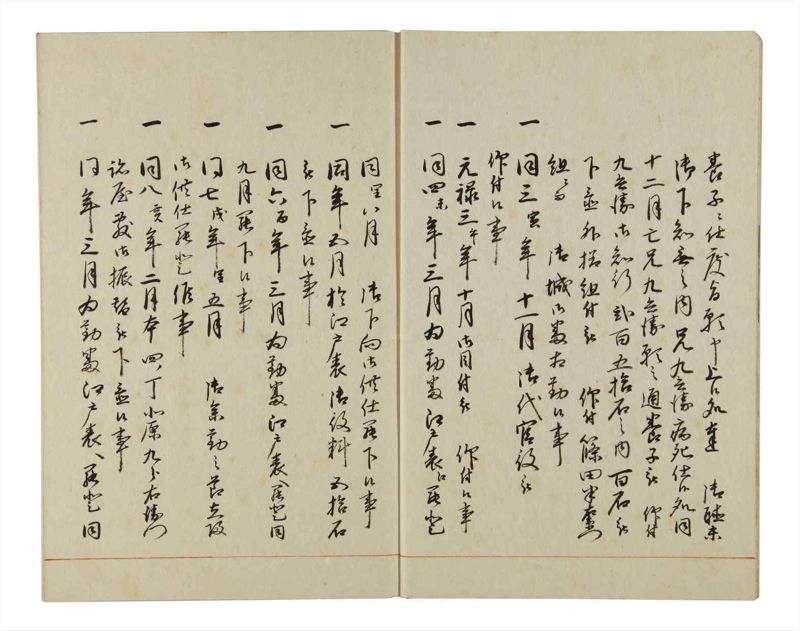 養子ニ仕度旨願申上候処達 御聴未
御下知無之内兄九兵衛病死仕候処同
十二月亡兄九兵衛願之通養子被 仰付
九兵衛御知行弐百五拾石之内百石被
下置外様組付被 仰付篠田半左衛門
組ニ而 御城御番相勤候事
一 同三寅年十一月 御代官役被
仰付候事
一 元禄三午年十月御目付被 仰付候事
一 同四未年三月為勤番江戸表江罷登
同閏八月 御下向御供仕罷下候事
一 同年五月於江戸表御役料五拾石
被下置候事
一 同六酉年三月為勤番江戸表へ罷登同
九月罷下候事
一 同七戌年閏五月 御参勤之節
御供仕罷登候事
一 同八亥年二月本四ノ丁小原九郎右衛門
詰屋敷御振替被下置候事
一 同年三月為勤番江戸表へ罷登同